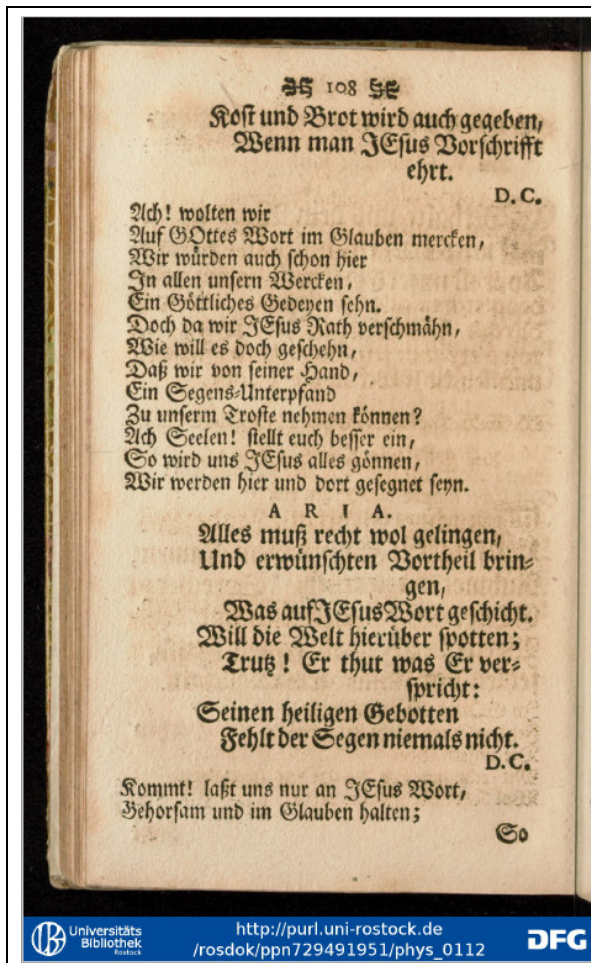 108
Kost und Brot wird auch gegeben,
Wenn man JEsus Vorschrifft
ehrt.
D. C.
Ach! wolten wir
Auf GOttes Wort im Glauben mercken,
Wir würden auch schon hier
In allen unsern Wercken,
Ein Göttliches Gedeyen sehn.
Doch da wir JEsus Rath verschmähn,
Wie will es doch geschehn,
Daß wir von seiner Hand,
Ein Segens-Unterpfand
Zu unserm Troste nehmen können?
Ach Seelen! stellt euch besser ein,
So wird uns JEsus alles gönnen,
Wir werden hier und dort gesegnet seyn.
A R I A.
Alles muß recht wol gelingen,
Und erwünschten Vortheil brin-
gen,
Was auf JEsus Wort geschicht.
Will die Welt hierüber spotten;
Trutz! Er thut was Er ver-
spricht:
Seinen heiligen Gebotten
Fehlt der Segen niemals nicht.
D. C.
Kommt! laßt uns nur an JEsus Wort,
Gehorsam und im Glauben halten;
So
Universitäts
Bibliothek
Rostock
http://purl.uni-rostock.de
/rosdok/ppn729491951/phys_0112
DFG